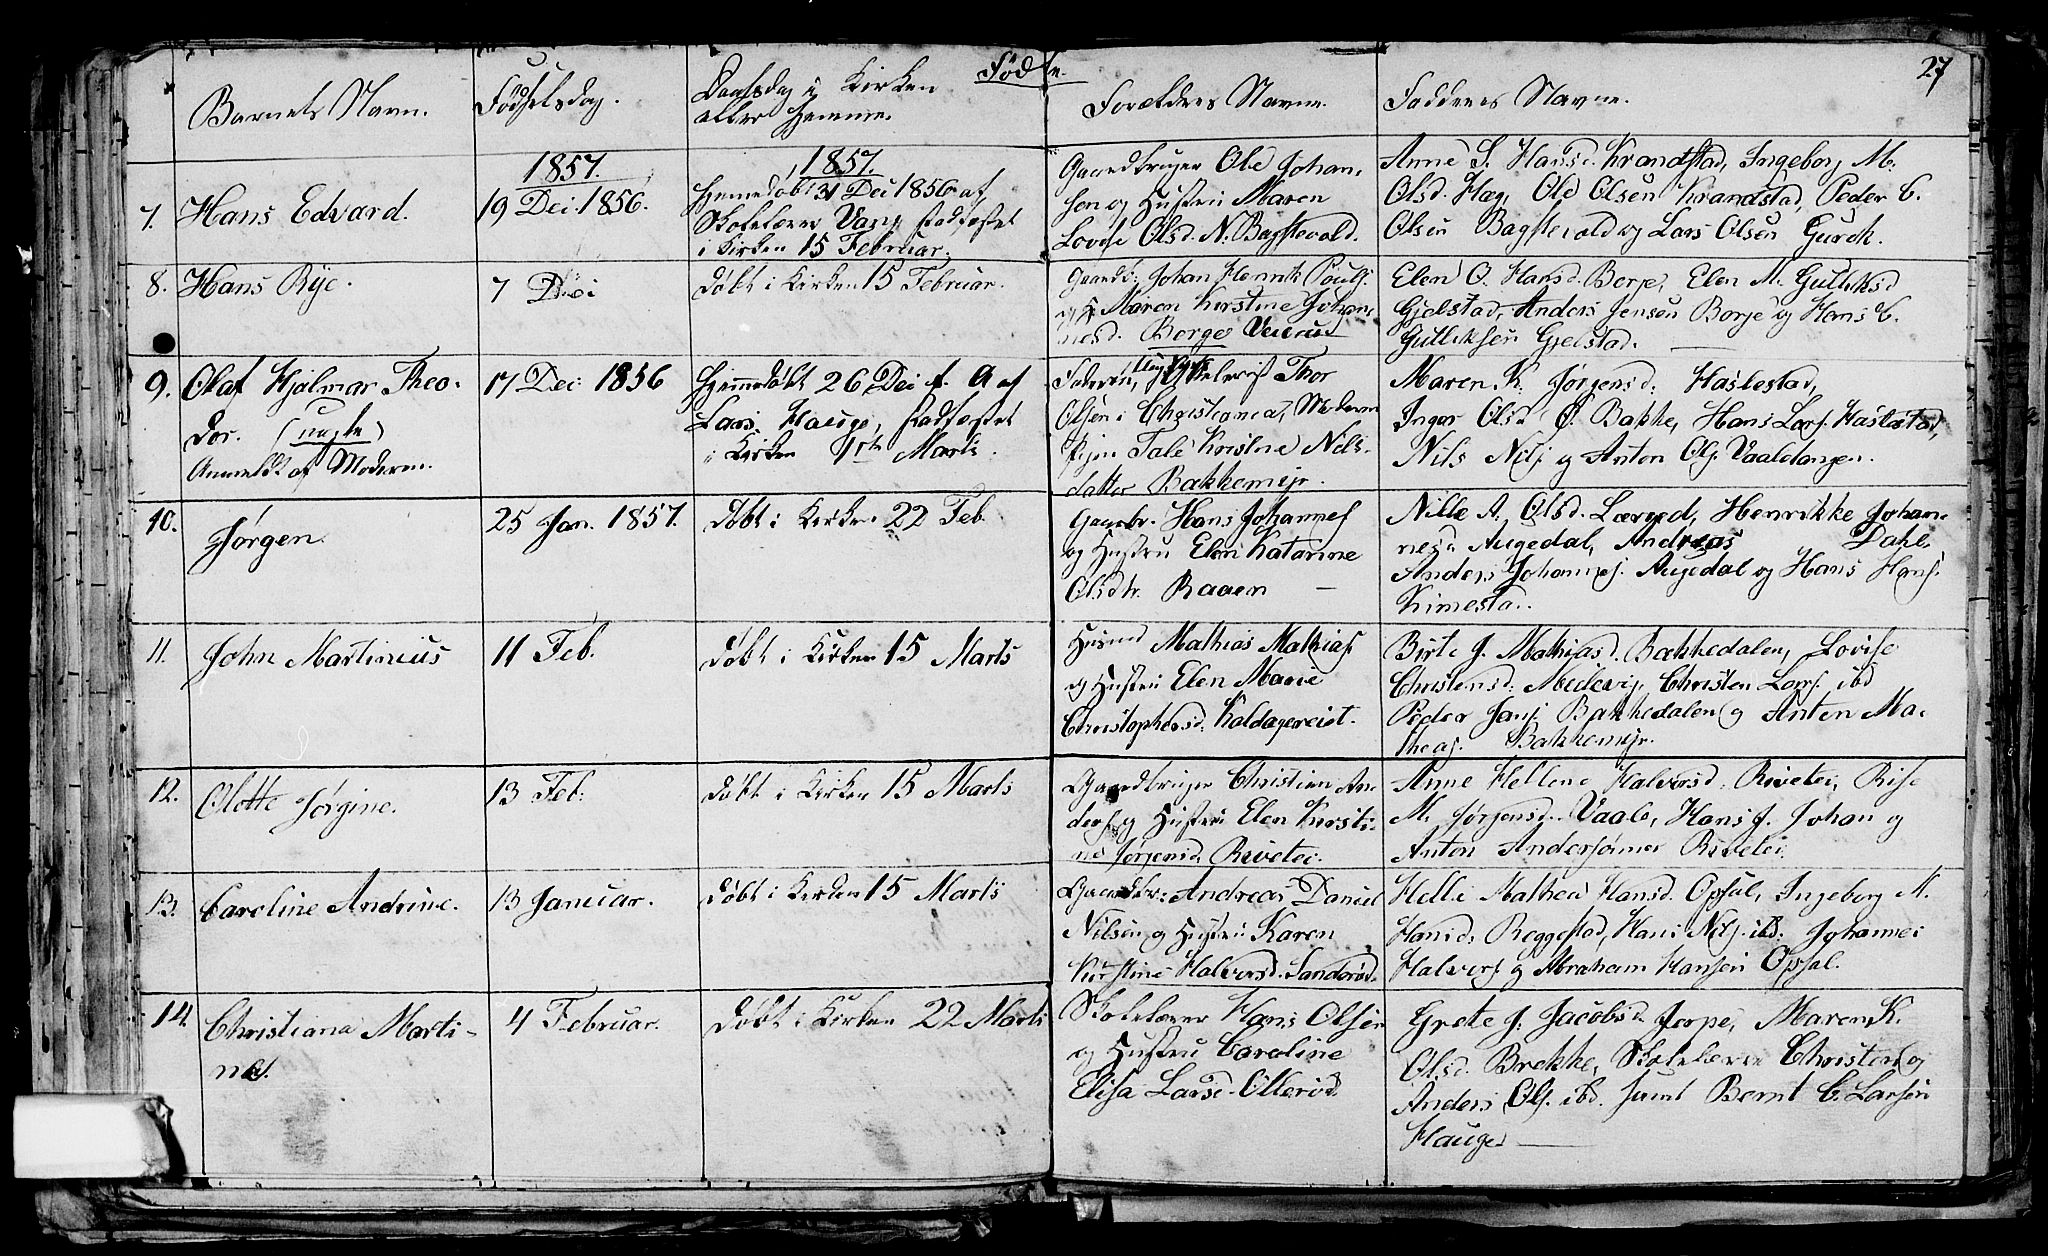 Fødte.
27
Barnets Navn.
Fødselsdag.
Daabsdag i Kirken
eller Hjemme.
Forældres Navne.
Faddernes Navne.
1857.
1857.
7. Hans Edvard.
19 Dec. 1856.
Hjemedøbt 31 Dec 1856 af
Skolelærer Vang, stadfæstet
i Kirken 15 Februar.
Gaardbruger Ole Johan-
sen og Hustru Maren
Lovise Olsd. N. Bagstevold.
Anne S. Hansd. Krandstad, Ingeborg M.
Olsd. Hæg, Ole Olsen Krandstad, Peder C.
Olsen Bagstevold og Lars Olsen Gurch.
8. Hans Rye.
7 Dec
døbt i Kirken 15 Februar.
Gaardb. Johan Henrik Pouls.
og H Maren Kirstine Johan-
nesd. Borge
Elen O. Hansd. Borge, Elen M. Gulliksd
Gjelstad, Anders Jensen Borge og Hans C.
Gulliksen Gjelstad.
9. Olaf Hjalmar Theo-
dor. (uægte)
Anmeldt af Moderen.
17 Dec. 1856
Hjemmedøbt 26 Dec f. A af
Lars Hauge, stadfæstet
i Kirken 1ste Marts.
Faderen, Ungkarl Thor
Olsen i Christiania, Moderen
Pigen Tale Kristine Nils-
datter Bakkemyr.
Maren K. Jørgensd. Haslestad,
Inger Olsd Ø. Bakke, Hans Lars. Haslestad,
Nils Nils. og Anton Ols. Vaaletangen.
10. Jørgen
25 Jan. 1857.
døbt i Kirken 22 Feb.
Gaardbr. Hans Johannes.
og Hustru Elen Katarine
Olsdtr. Raaen
Nille A. Olsd. Lærved, Henrikke Johan-
nesd Augedal, Andreas Dahl.
Anders Johannes. Augedal og Hans Hans.
Kimesta..
11. John Martinius
11 Feb.
døbt i Kirken 15 Marts
Husmd Mathias Mathias.
og Hustru Elen Marie
Christophersd. Kaldagereiet.
Birte J. Mathiasd. Bakkedalen, Lovise
Christensd. Christen Lars. ibd
Peder Jans. Bakkedalen og Anton Ma-
theas. Bakkemyr.
12. Olette Jørgine.
13 Feb.
døbt i Kirken 15 Marts
Gaardbruger Christian An-
ders. og Hustru Elen Kirsti-
ne Jørgensd. Revetei.
Anne Hellene Halvorsd. Revetei, Rise
M. Jørgensd. Vaale, Hans J. Johan og
Anton Anderssønner Revetei.
13. Caroline Andrine.
13 Januar.
døbt i Kirken 15 Marts
Gaardbr. Andreas Daniel
Nilsen og Hustru Karen
Kirstine Halvorsd. Sanderød.
Helle Mathea Hansd. Opsal, Ingeborg M.
Hansd. Reggestad, Hans Nils. ibd. Johannes
Halvors. og Abraham Hansen Opsal.
14. Christiana Marti-
nes.
4 Februar.
døbt i Kirken 22 Marts
Skolelærer Hans Olsen
og Hustru Caroline
Elisa Larsd. Ollerød
Grete J. Jacobsd. Jerpe, Maren K.
Olsd. Brekke, Skolelærer Christen og
Anders Ols. ibd. samt Bernt C. Larsen
Hauge